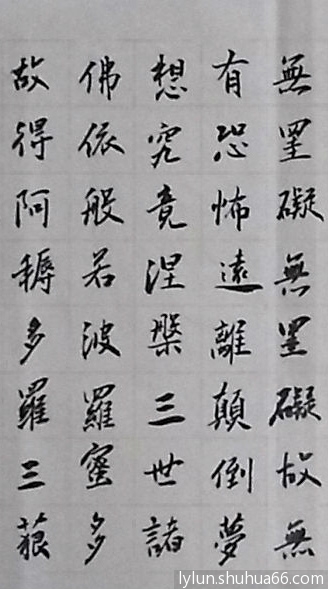 無罣礙無罣礙故無
有恐怖遠離顛倒夢
想究竟涅槃三世諸
佛依般若波羅蜜多
故得阿耨多羅三藐
lylun.shuhua66.com